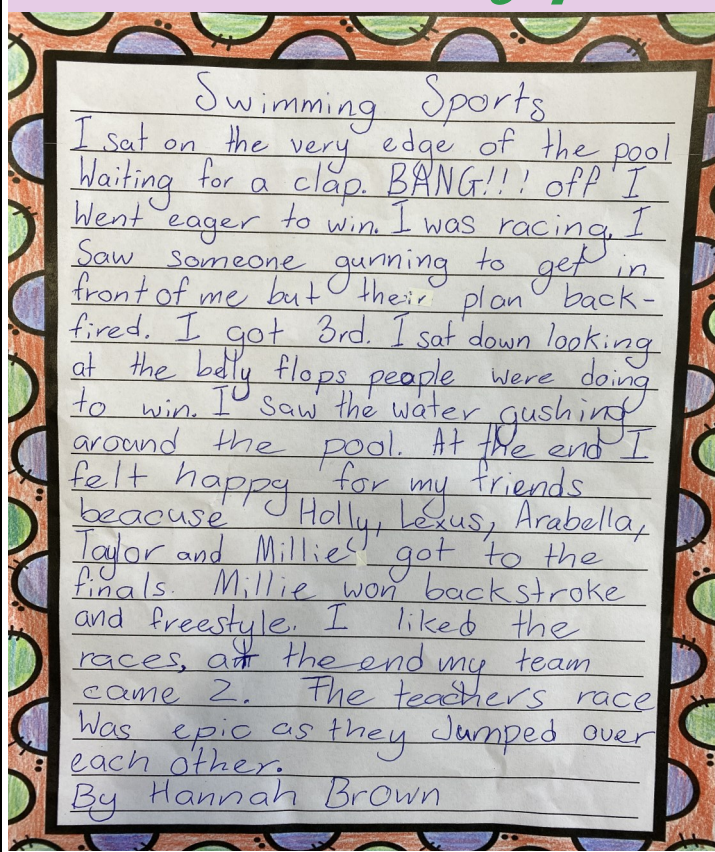 Swimming Sports
I sat on the very edge of the pool
Waiting for a clap. BANG!!! off I
Went eager to win. I was racing, I
Saw someone gunning to get in
front of me but their plan back-
fired. I got 3rd. I sat down looking
at the belly flops people were doing
to win. I saw the water gushing
around the pool. At the end I
felt happy for my friends
beacuse Holly, Lexus, Arabella,
Taylor and Millie got to the
finals. Millie won backstroke
and freestyle. I liked the
races, at the end my team
came 2. The teachers race
Was epic as they Jumped over
each other.
By Hannah Brown